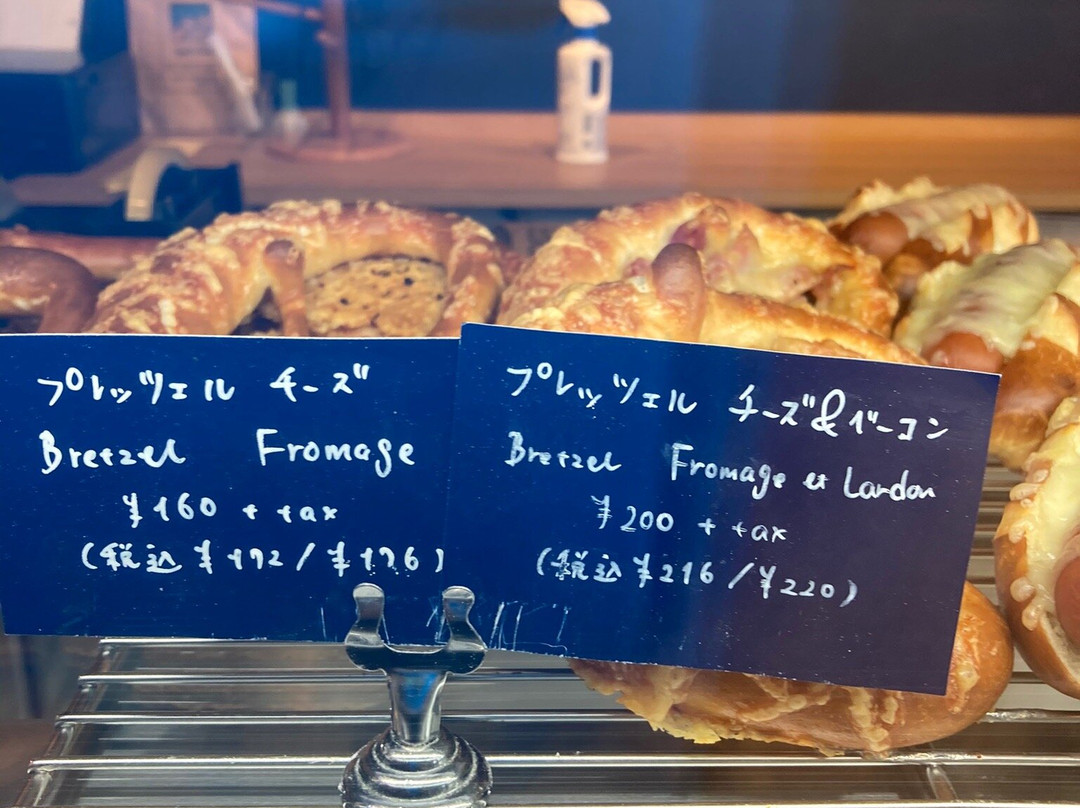 プレッツェル チーズ
Bretzel Fromage
¥160 + tax
(税込 ¥172 / ¥176)
プレッツェル チーズ&ベーコン
Bretzel Fromage et Lardon
¥200 + tax
(税込 ¥216 / ¥220)